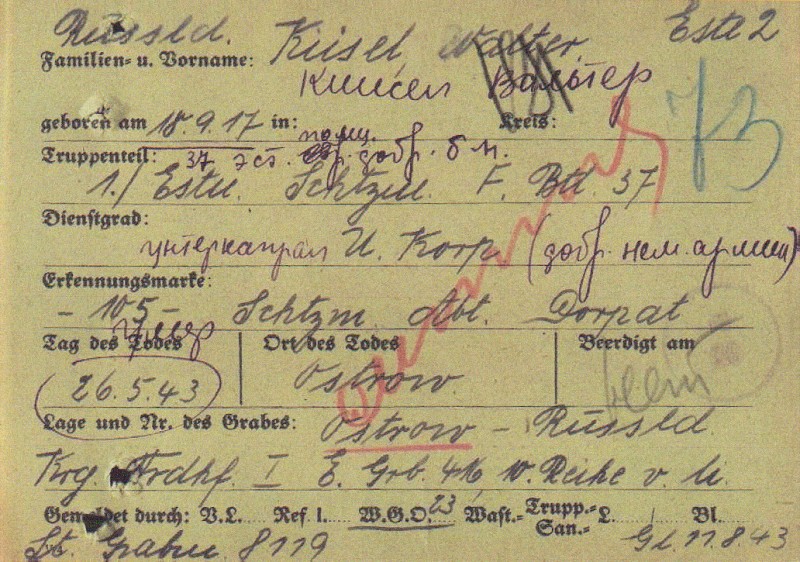 Russld. Kiisel, Walter. Este 2
Familien= u. Vorname:
Киисел Вальтер
73
geboren am 18.9.17 in: Kreis:
Truppenteil: 37 эст. добр. б-н.
1./ Estn. Schtzm. F. Btl. 37
Dienstgrad:
унтеркапрал U. Korp (добр. нем. армии)
Erkennungsmarke:
- 105 - Schtzm Abt. Dorpat
умер
Tag des Todes Ort des Todes Beerdigt am
26.5.43 Ostrow
Lage und Nr. des Grabes: Ostrow - Russld.
Krg. Frdhf. I E. Grb. 416 w. Reihe v. U.
Gemeldet durch: V.L. Ref L. W.G.O. 23 Wast.= Trupp.= San.= L. Bl.
St. 8119 Gl. 11.8.43